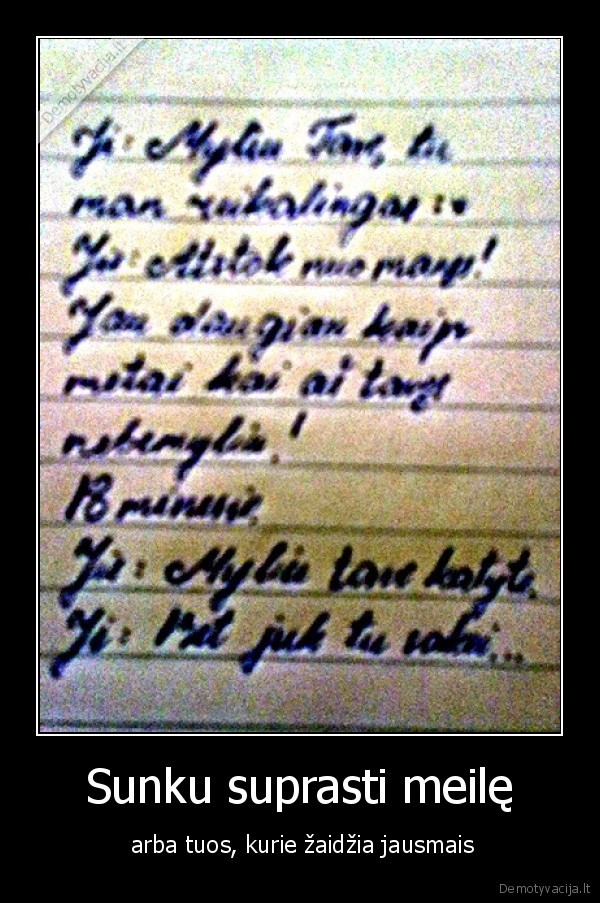 Demotyvacija.lt
Ji: Myliu Tave, tu
man reikalingas :*
Jis: Atstok nuo manęs!
Jau daugiau kaip
metai kai aš tavęs
nebemyliu!
Po mėnesio.
Jis: Myliu tave katyte.
Ji: Bet juk tu sakei...
Sunku suprasti meilę
arba tuos, kurie žaidžia jausmais
Demotyvacija.lt